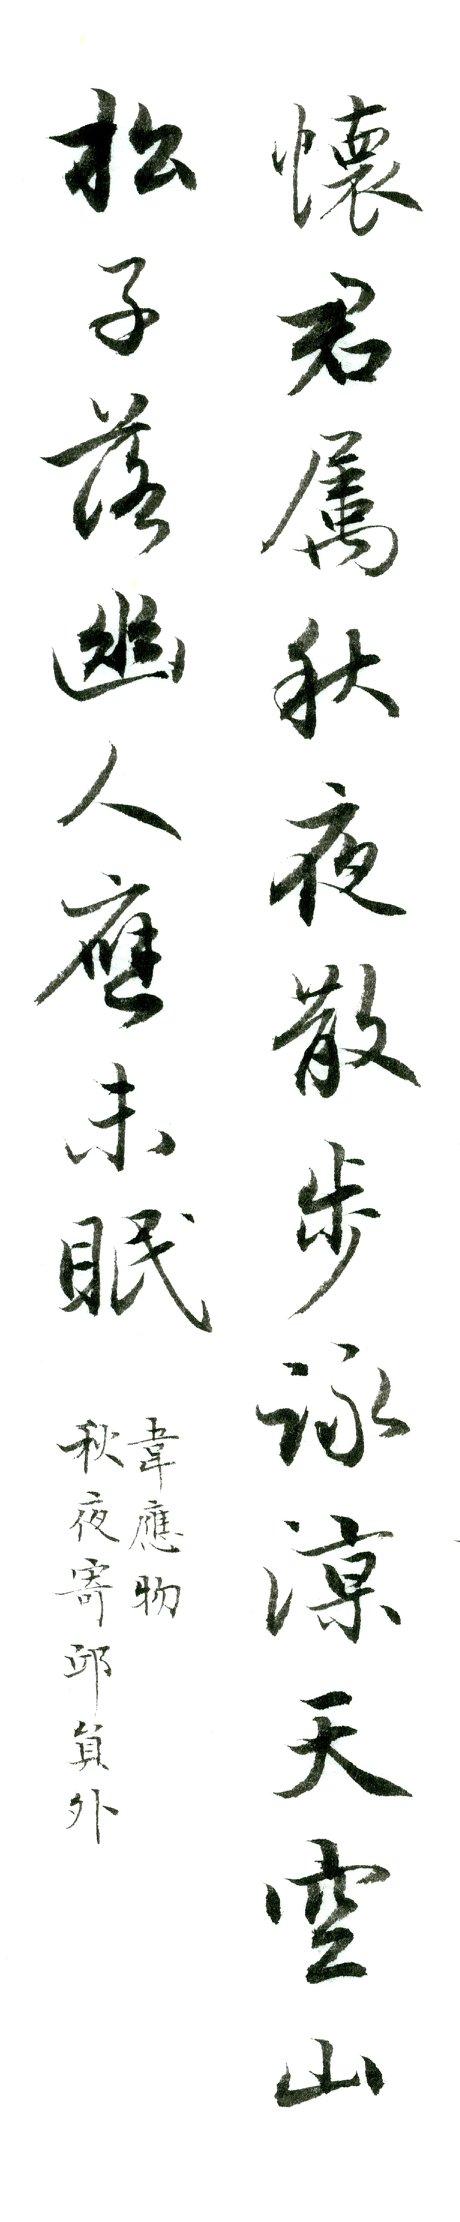 懷君属秋夜散步詠涼天空山
松子落幽人應未眠
韋應物
秋夜寄邱員外